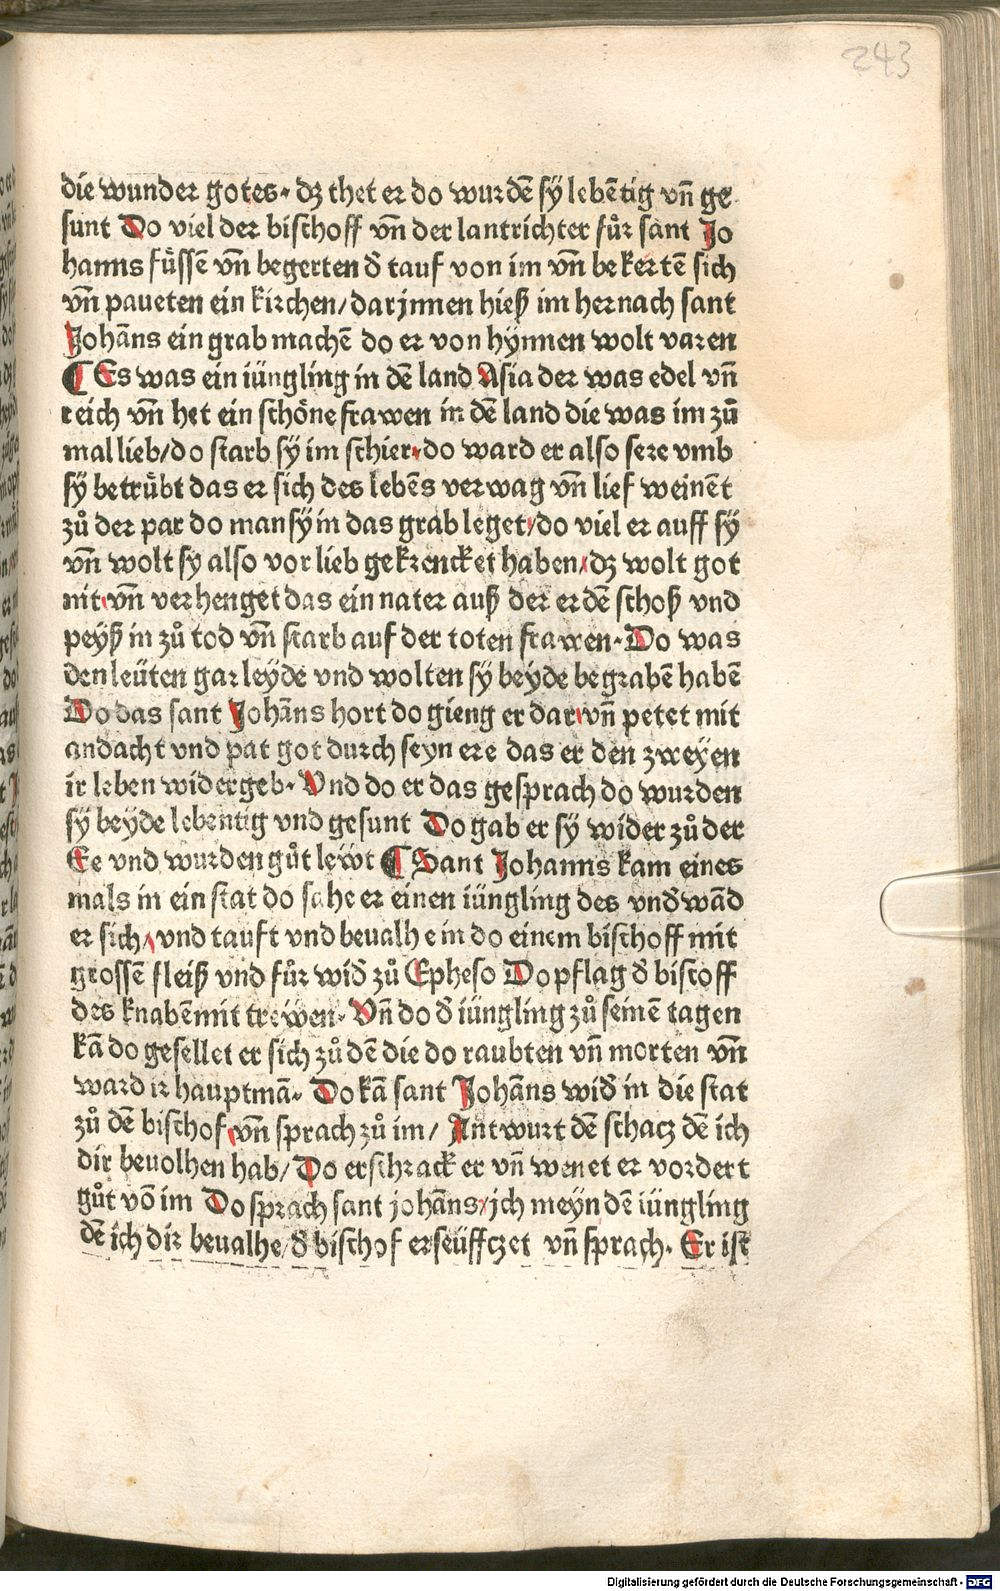 243
die wunder gotes. dz thet er do wurdē sÿ lebētig vn̄ ge
sunt Do viel der bischoff vn̄ der lantrichter fůr sant Jo
hanns fůssē vn̄ begerten d̄ tauf von im vn̄ bekertē sich
vn̄ paueten ein kirchen/ darjnnen hieß im hernach sant
Johāns ein grab machē do er von hÿnnen wolt varen
¶ Es was ein iüngling in dē land Asia der was edel vn̄
reich vn̄ het ein schöne frawen in dē land die was im zů
mal lieb/ do starb sÿ im schier/ do ward er also sere vmb
sÿ betrůbt das er sich des lebēs verwag vn̄ lief weinēt
zů der par do man sÿ in das grab leget/ do viel er auff sÿ
vn̄ wolt sÿ also vor lieb gekrencket haben/ dz wolt got
nit/ vn̄ verhenget das ein nater auß der erdē schoß vnd
peÿß in zů tod vn̄ starb auf der toten frawen. Do was
den leüten gar leyde vnd wolten sÿ beyde begrabē habē
Do das sant Johāns hort do gieng er dar/ vn̄ petet mit
andacht vnd pat got durch seyn ere das er den zweÿen
ir leben widergeb. Vnd do er das gesprach do wurden
sÿ beyde lebentig vnd gesunt Do gab er sÿ wider zů der
Ee vnd wurden gůt lewt ¶ Sant Johanns kam eines
mals in ein stat do sahe er einen iüngling des vnd̄wād
er sich/ vnd tauft vnd beualh e in do einem bischoff mit
grossē fleiß vnd fůr wid̄ zů Epheso Do pflag d̄ biscoff
des knabē mit trewen. Vn̄ do d̄ iüngling zů seinē tagen
kā do gesellet er sich zů dē die do raubten vn̄ morten vn̄
ward ir hauptmā. Do kā sant Johāns wid̄ in die stat
zů dē bischof/ vn̄ sprach zů im/ Antwurt dē schacz dē ich
dir beuolhen hab/ Do erschrack er vn̄ wenet er vordert
gůt vō im Do sprach sant johāns/ ich meyn dē iüngling
dē ich dir beualhe/ d̄ bischof erseüffczet vn̄ sprach. Er ist
Digitalisierung gefördert durch die Deutsche Forschungsgemeinschaft - DFG